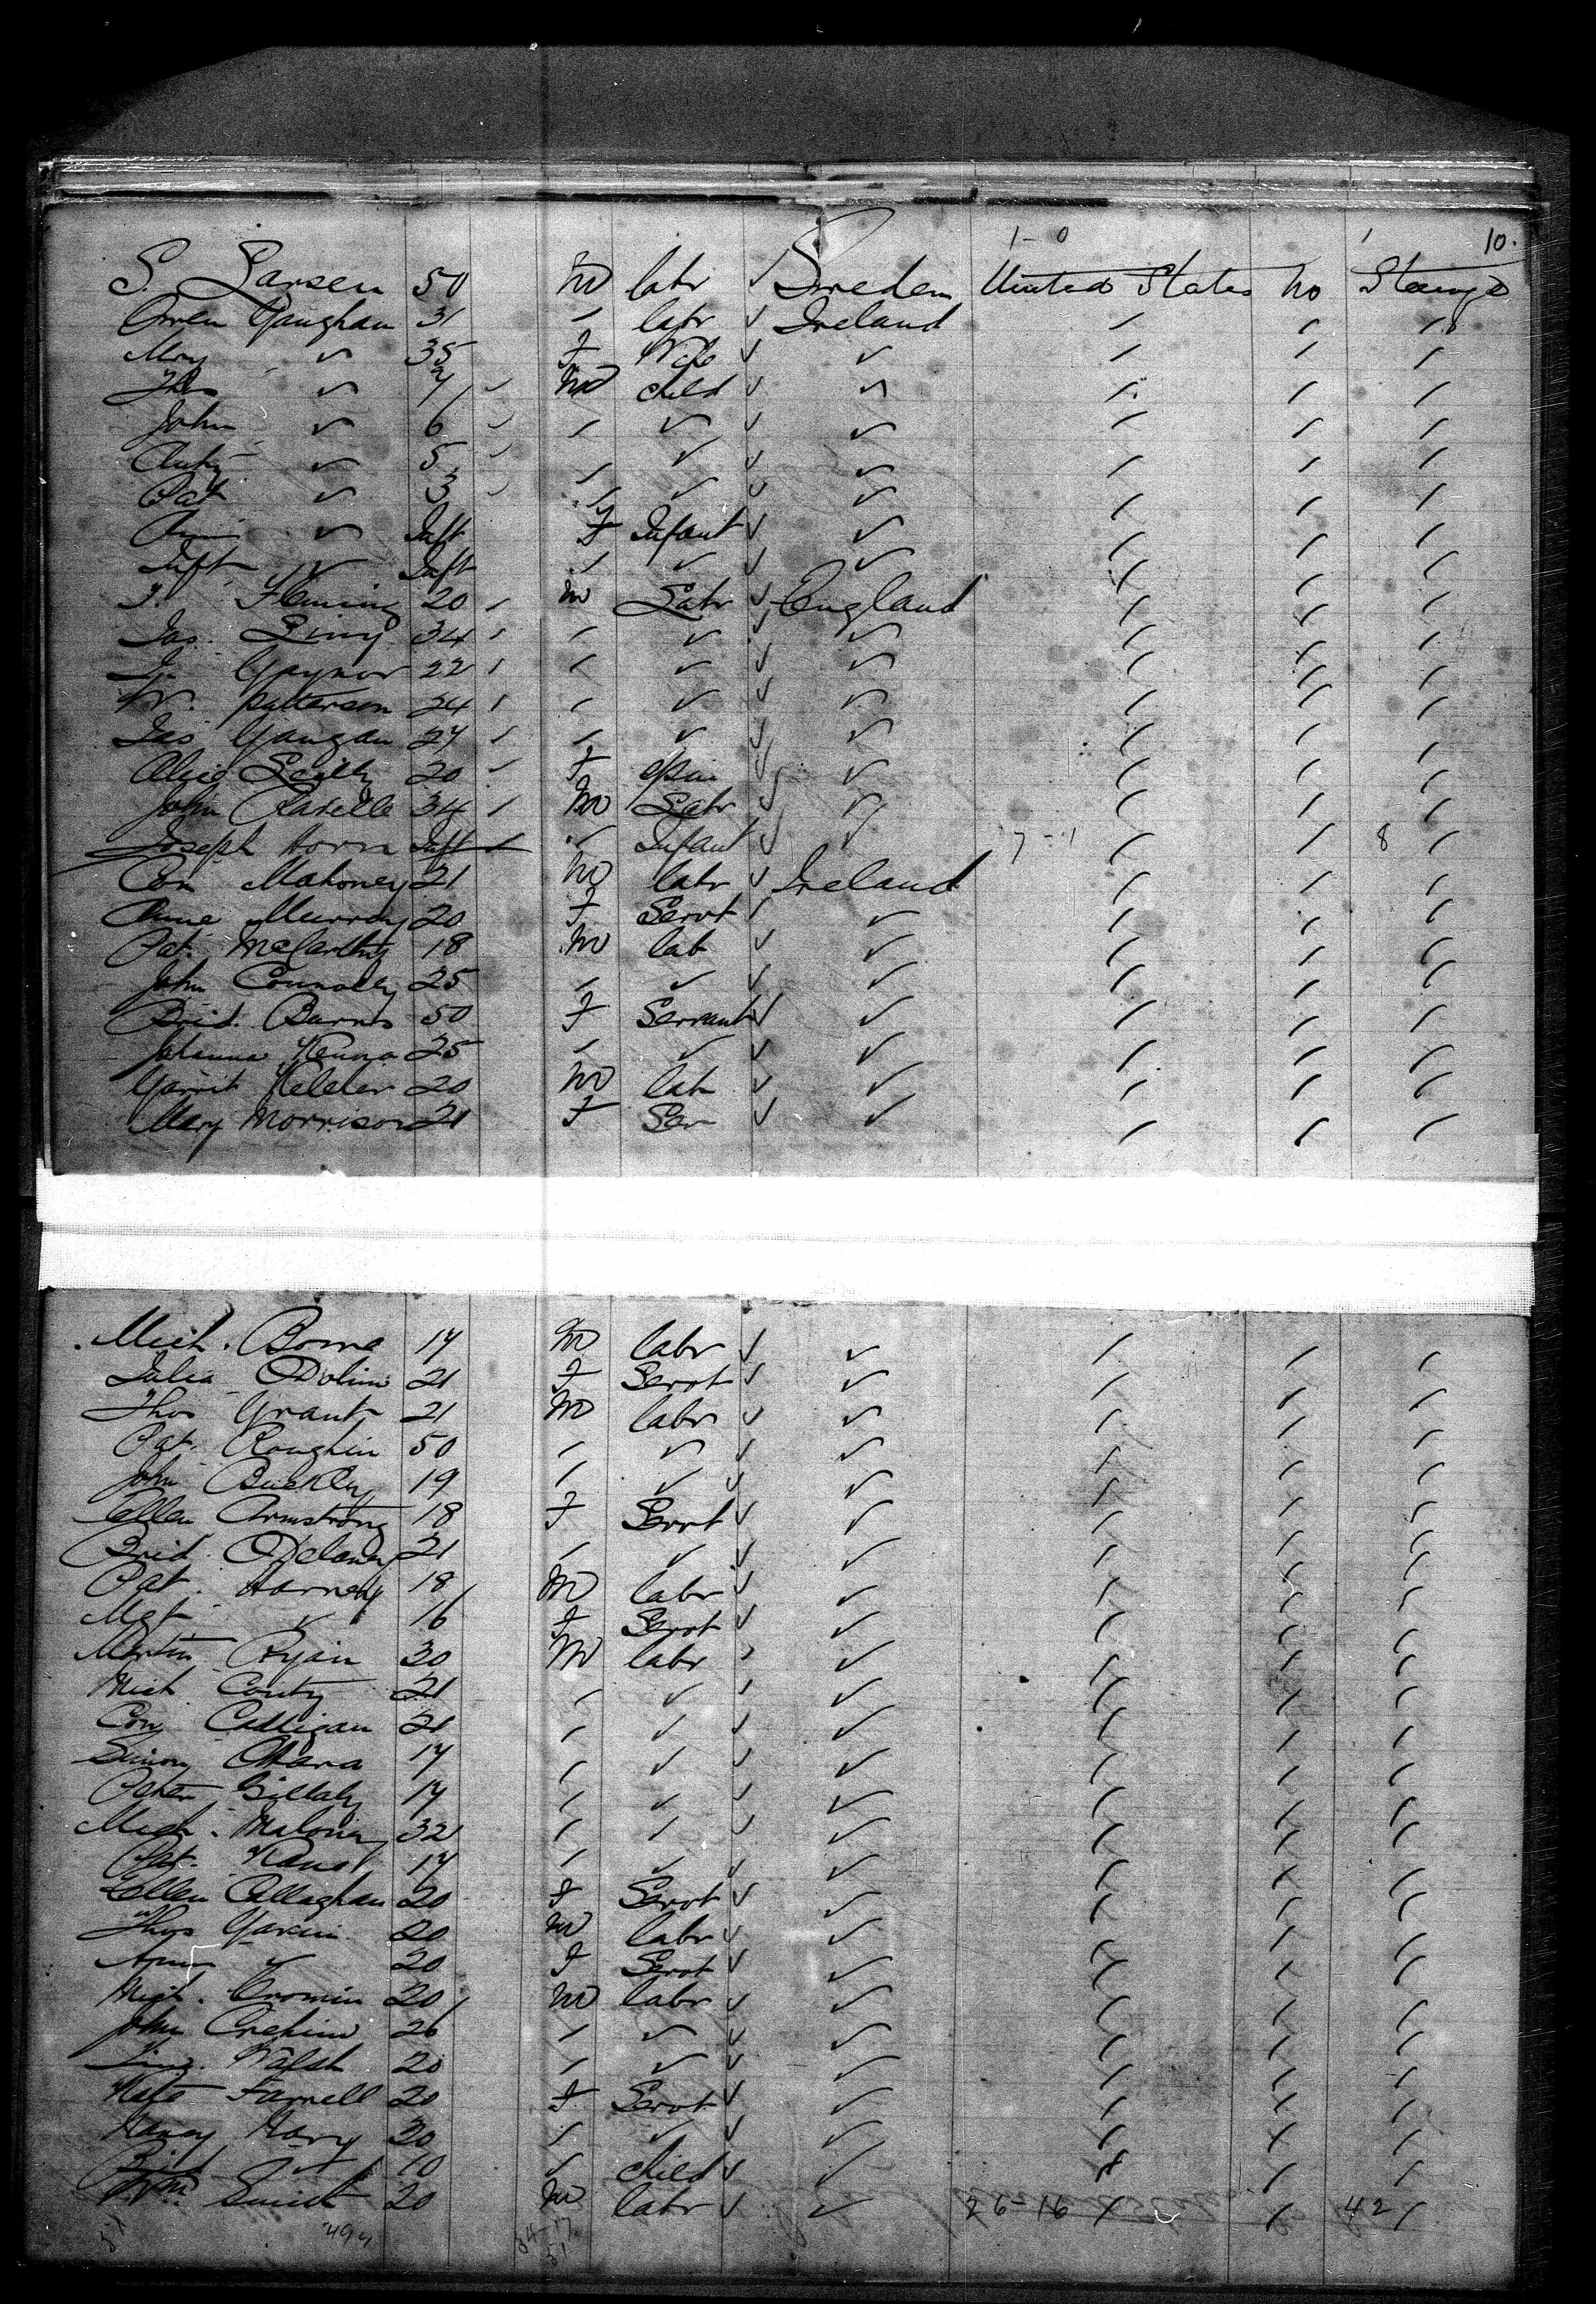 1-0 1 10.
S. Larsen 50 M labr ✓ Sweden United States no Steerage
Owen Gaughan 31 / labr ✓ Ireland / / /
Mary ✓ 35 F Wife ✓ ✓ / / /
Thos ✓ 7 ✓ M child ✓ ✓ / / /
John ✓ 6 ✓ / ✓ ✓ / / /
Anty ✓ 5 ✓ / ✓ ✓ ✓ / / /
Pat ✓ 3 ✓ / ✓ ✓ ✓ / / /
✓ Inft F Infant ✓ ✓ / / /
Inft ✓ Inft / ✓ ✓ ✓ / / /
Fleming 20 / M Labr ✓ England / / /
Jas. 34 / / ✓ ✓ ✓ / / /
Gaynor 22 / / ✓ ✓ ✓ / / /
W. Patterson 24 / / ✓ ✓ ✓ / / /
Jas Gaugan 27 / / ✓ ✓ ✓ / / /
Alice Scully 20 ✓ F Spin ✓ ✓ / / /
John 34 / M Labr ✓ ✓ / / /
Joseph Horn Inft / Infant ✓ ✓ 7-1 / / 8 /
Con Mahoney 21 M labr ✓ Ireland / / /
Anne Murray 20 F Servt ✓ ✓ / / /
Pat. McCarthy 18 M lab ✓ ✓ / / /
John Connolly 25 / ✓ ✓ ✓ / / /
Brid. Burns 50 F Servant ✓ ✓ / / /
Johanna Kenna 25 / ✓ ✓ ✓ / / /
Garrit Keleher 20 M lab ✓ ✓ / / /
Mary Morrison 21 F Ser ✓ ✓ / / /
Mich. 17 M labr ✓ ✓ / / /
Julia 21 F Servt ✓ ✓ / / /
Thos Grant 21 M labr ✓ ✓ / / /
Pat. Roughin 50 / ✓ ✓ ✓ / / /
John Buckley 19 / ✓ ✓ ✓ / / /
Ellen Armstrong 18 F Servt ✓ ✓ / / /
Brid. Delaney 21 / ✓ ✓ ✓ / / /
Pat. Harney 18 M labr ✓ ✓ / / /
Mgt ✓ 16 F Servt ✓ ✓ / / /
Martin Ryan 30 M labr ✓ ✓ / / /
Mich Conty 21 / ✓ ✓ ✓ / / /
Cony Calligan 21 / ✓ ✓ ✓ / / /
Simon OHara 17 / ✓ ✓ ✓ / / /
Peter 17 / ✓ ✓ ✓ / / /
Mich. Maloney 32 / / ✓ ✓ / / /
Pat. 17 / ✓ ✓ ✓ / / /
Ellen Callaghan 20 F Servt ✓ ✓ / / /
Thos Garvin 20 M labr ✓ ✓ / / /
✓ 20 F Servt ✓ ✓ / / /
Mich. Cromin 20 M labr ✓ ✓ / / /
John 26 / ✓ ✓ ✓ / / /
Walsh 20 / ✓ ✓ ✓ / / /
Kate Farnell 20 F Servt ✓ ✓ / / /
Hary 30 / ✓ ✓ ✓ / / /
Brid ✓ 10 ✓ child ✓ ✓ / / /
Wm. Smith 20 M labr ✓ ✓ 26-16 / / 42 /
51 494 34-17
51